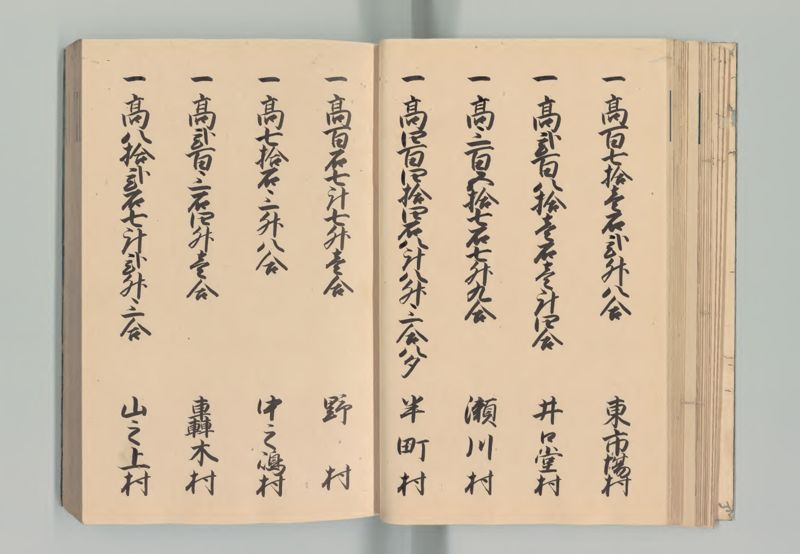 一 高百七拾壱石弐升八合 東市場村
一 高弐百八拾壱石壱斗四合 井口堂村
一 高三百六拾七石七升九合 瀬川村
一 高四百四拾四石八斗八升三合八夕 半町村
一 高百石七斗七升壱合 野村
一 高七拾石三升八合 中之嶋村
一 高弐百三石四升壱合 轟木村
一 高八拾弐石七斗弐升三合 山之上村